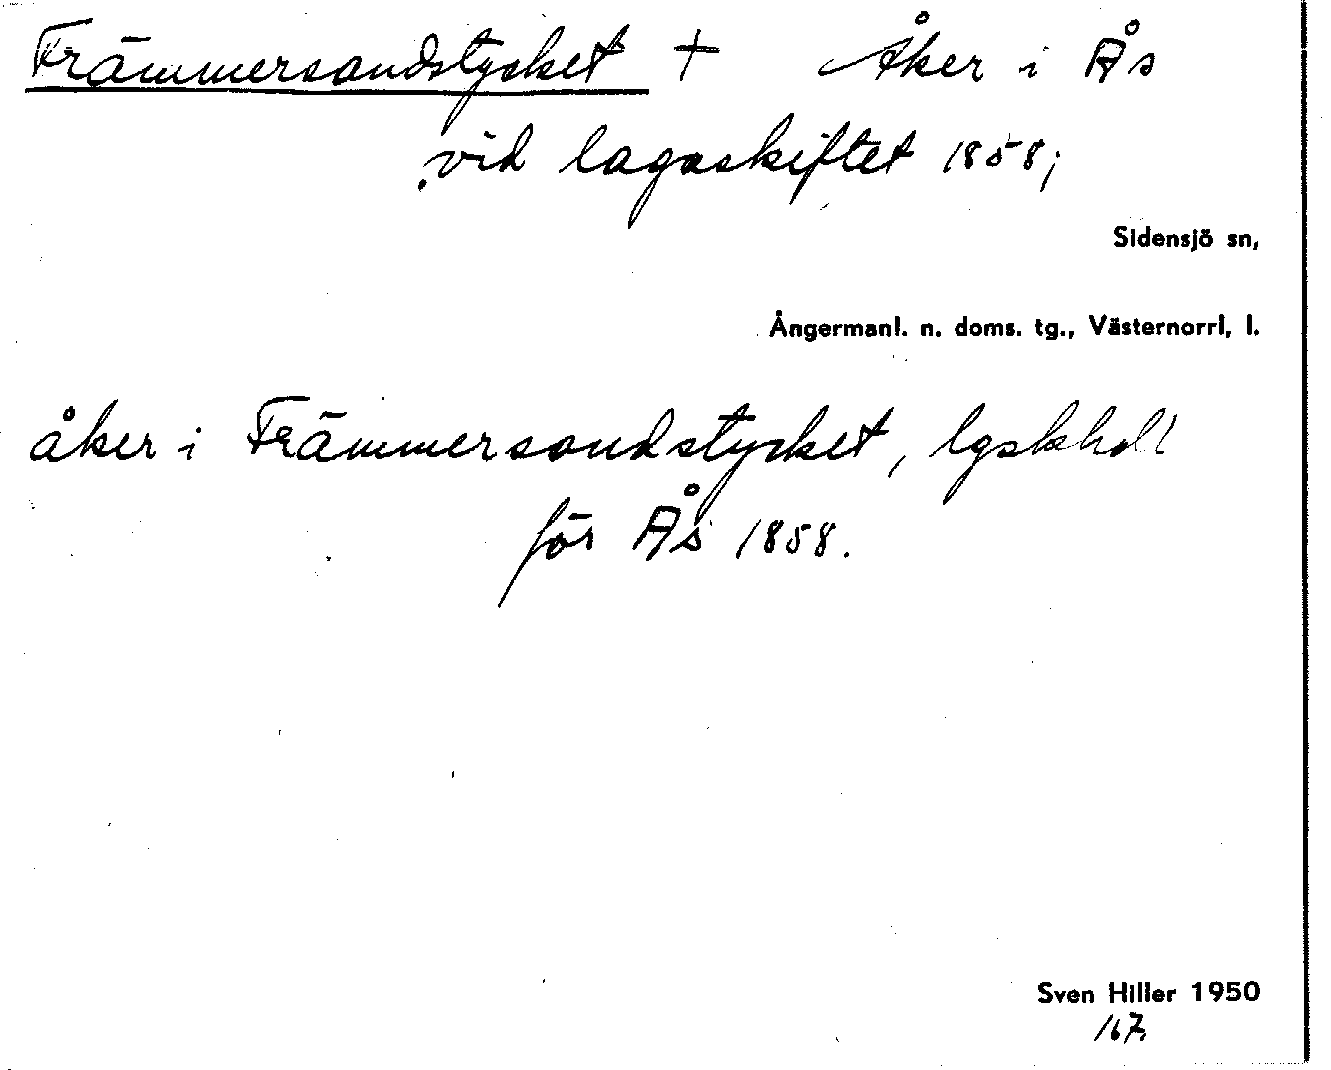 Främmersandstycket + Åker i Ås
vid lagaskiftet 1858;
Sidensjö sn,
Ångermanl. n. doms. tg., Västernorrl. l.
åker i Främmersandstycket, lgskhdl
för Ås 1858.
Sven Hiller 1950
167.